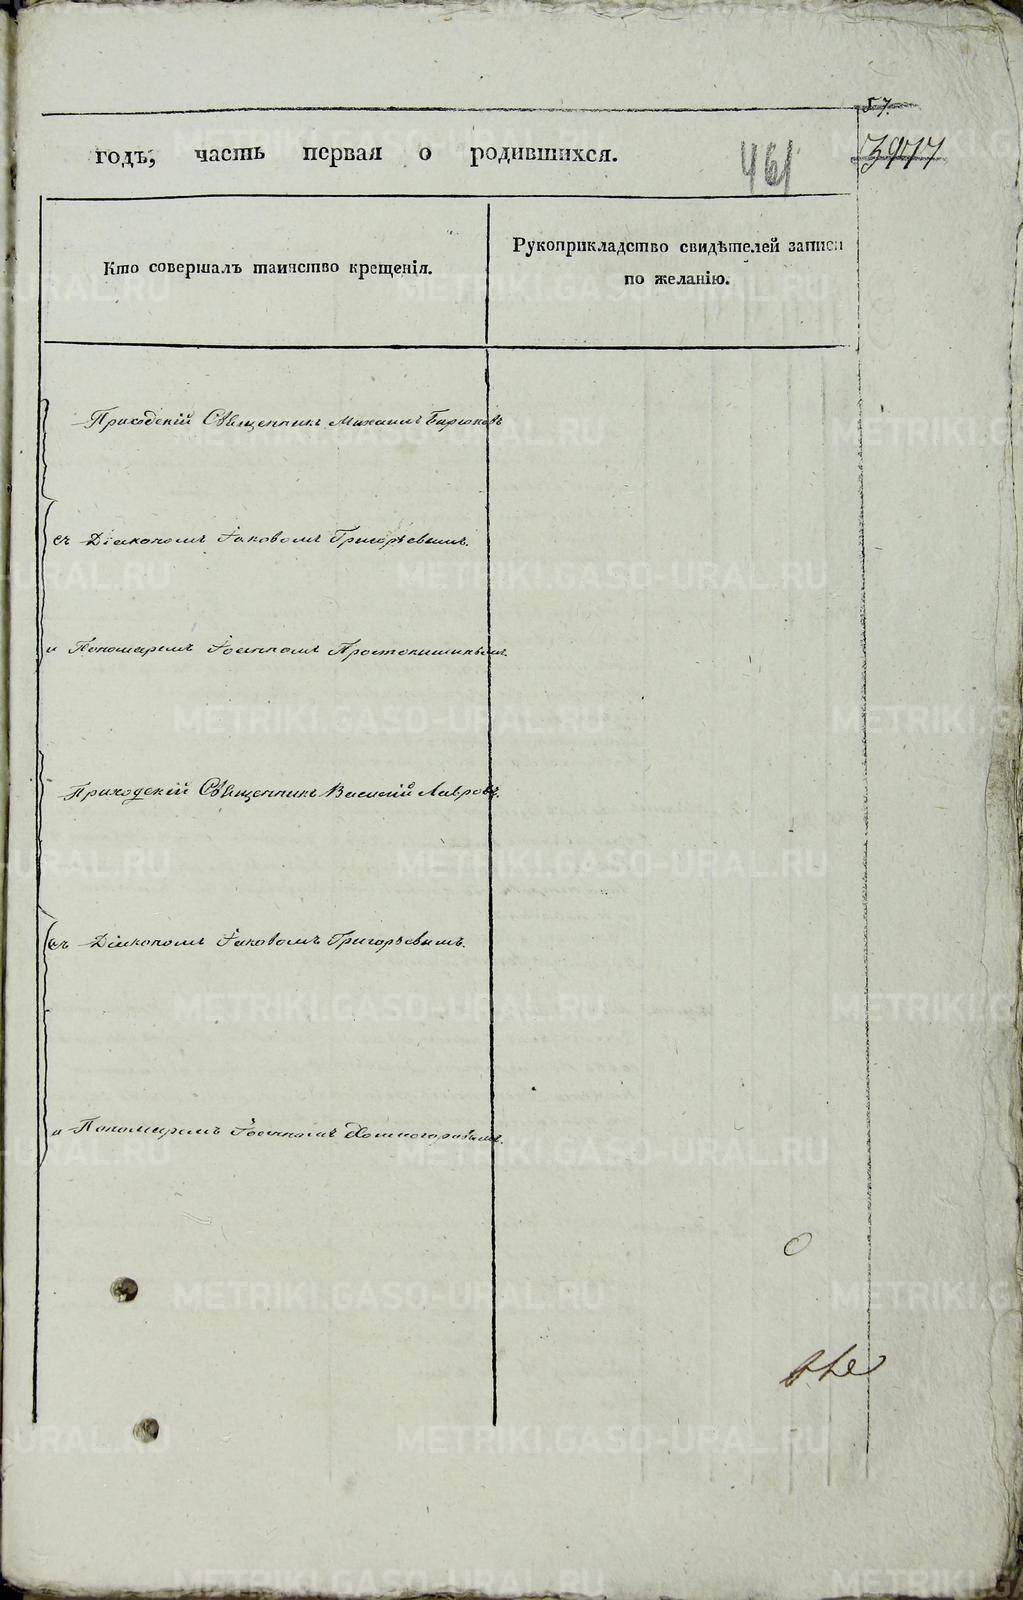 57.
годъ, часть первая о родившихся.
461
3977
Кто совершалъ таинство крещенія.
Рукоприкладство свидѣтелей записи
по желанію.
Приходскій Священникъ Михаилъ Бирюковъ
съ Діакономъ Іаковомъ Григорьевымъ.
и Пономаремъ Іоанномъ Простопишинымъ.
Приходскій Священникъ Василій Лавровъ.
съ Діакономъ Іаковомъ Григорьевымъ.
и Пономаремъ Іоанномъ Холмогоровымъ.
METRIKI.GASO-URAL.RU